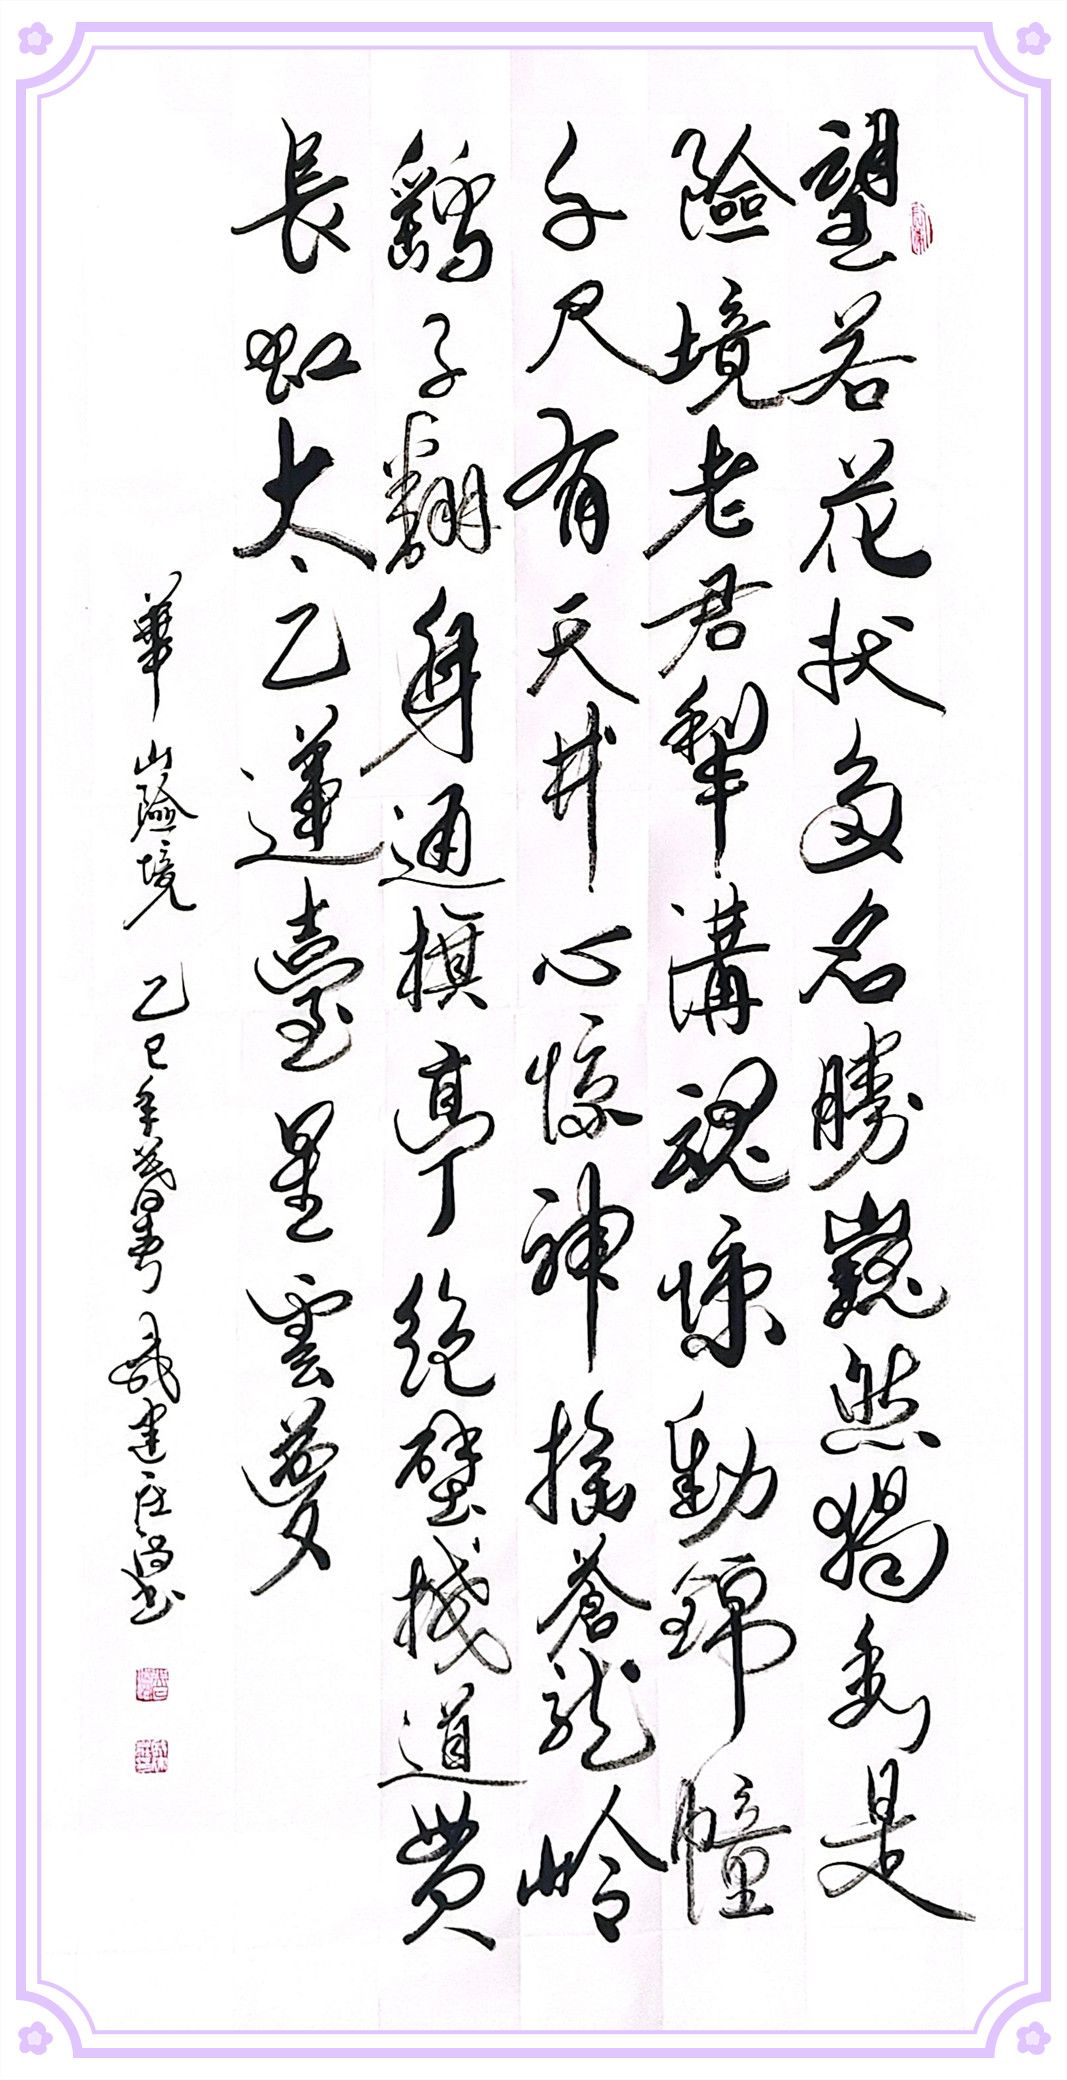 望若花状多名勝巍然獨秀是
險境老君犁溝魂悚動錦幢
千尺有天井心惊神搖蒼龍岭
鷂子翻身通棋亭絕壁棧道贯
長虹太乙蓮臺星雲夢
華山險境 乙巳年暮春 建